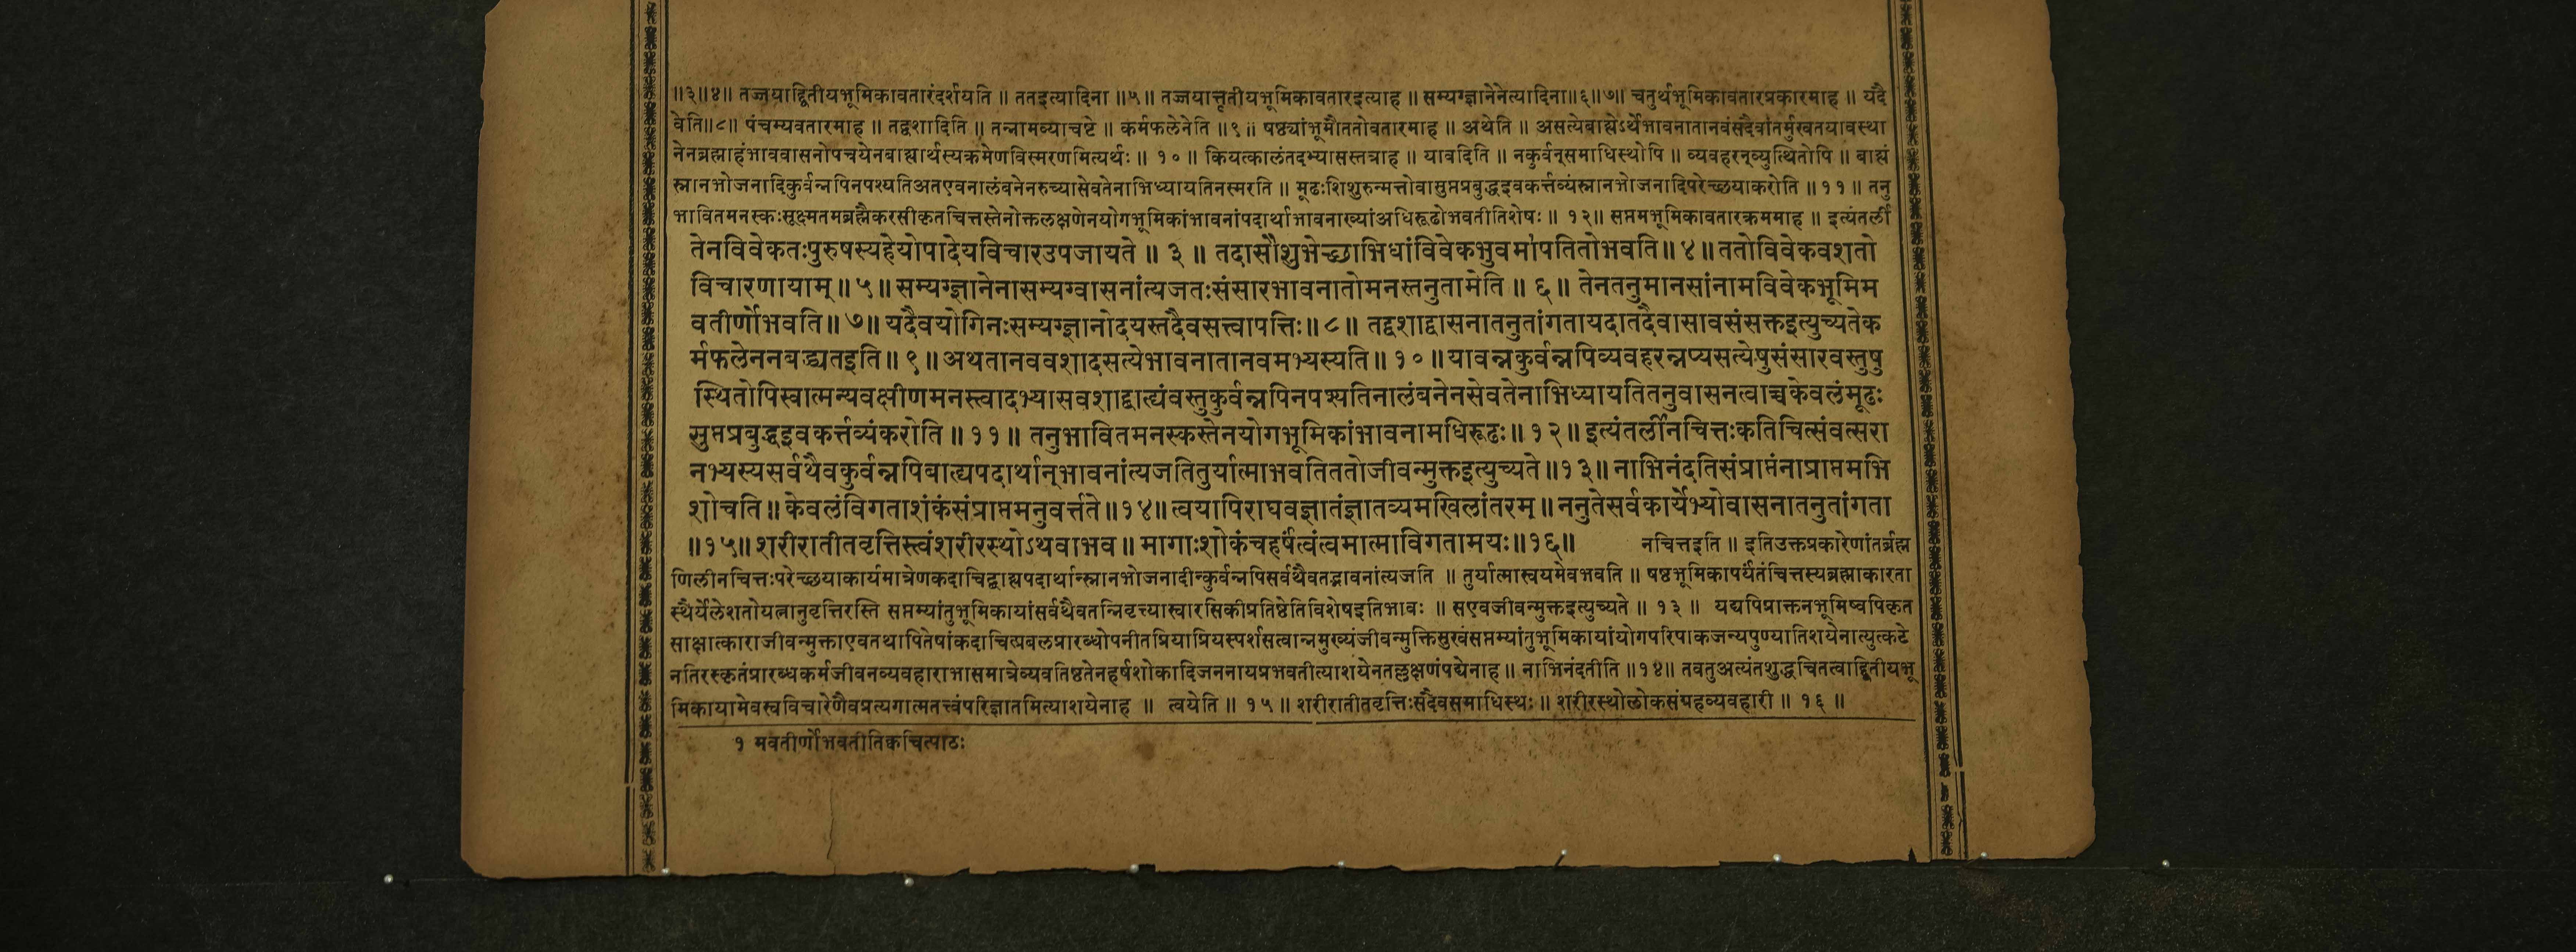 ॥३॥४॥ तज्जयाद्द्वितीयभूमिकावतारंदर्शयति ॥ ततइत्यादिना ॥५॥ तज्जयात्तृतीयभूमिकावतारइत्याह ॥ सम्यग्ज्ञानेनेत्यादिना॥६॥७॥ चतुर्थभूमिकावतारप्रकारमाह ॥ यदै
वेति॥८॥ पंचम्यवतारमाह ॥ तद्वशादिति ॥ तन्नामव्याचष्टे ॥ कर्मफलेनेति ॥९॥ षष्ठ्यांभूमौततोवतारमाह ॥ अथेति ॥ असत्येबाह्येऽर्थेभावनातानवंसदैवांतर्मुखतयावस्था
नेनब्रह्माहंभाववासनोपचयेनबाह्यार्थस्यक्रमेणविस्मरणमित्यर्थः ॥ १० ॥ कियत्कालंतदभ्यासस्तत्राह ॥ यावदिति ॥ नकुर्वन्समाधिस्थोपि ॥ व्यवहरन्व्युत्थितोपि ॥ बाह्यं
स्नानभोजनादिकुर्वन्नपिनपश्यतिअतएवनालंबनेनरुच्यासेवतेनाभिध्यायतिनस्मरति ॥ मूढःशिशुरुन्मत्तोवासुप्तप्रबुद्धइवकर्त्तव्यंस्नानभोजनादिपरेच्छयाकरोति ॥ ११ ॥ तनु
भावितमनस्कःसूक्ष्मतमब्रह्मैकरसीकृतचित्तस्तेनोक्तलक्षणेनयोगभूमिकांभावनांपदार्थाभावनाख्यांअधिरूढोभवतीतिशेषः ॥ १२॥ सप्तमभूमिकावतारक्रममाह ॥ इत्यंतर्ली
तेनविवेकतःपुरुषस्यहेयोपादेयविचारउपजायते ॥ ३ ॥ तदासौशुभेच्छाभिधांविवेकभुवमा१पतितोभवति॥ ४ ॥ ततोविवेकवशतो
विचारणायाम् ॥ ५ ॥ सम्यग्ज्ञानेनासम्यग्वासनांत्यजतःसंसारभावनातोमनस्तनुतामेति ॥ ६ ॥ तेनतनुमानसांनामविवेकभूमिम
वतीर्णोभवति॥ ७॥ यदैवयोगिनःसम्यग्ज्ञानोदयस्तदैवसत्त्वापत्तिः॥ ८ ॥ तद्वशाद्वासनातनुतांगतायदातदैवासावसंसक्तइत्युच्यतेक
र्मफलेननबद्ध्यतइति॥ ९ ॥ अथतानववशादसत्येभावनातानवमभ्यस्यति॥ १० ॥ यावन्नकुर्वन्नपिव्यवहरन्नप्यसत्येषुसंसारवस्तुषु
स्थितोपिस्वात्मन्यवक्षीणमनस्त्वादभ्यासवशाद्बाह्यंवस्तुकुर्वन्नपिनपश्यतिनालंबनेनसेवतेनाभिध्यायतितनुवासनत्वाच्चकेवलंमूढः
सुप्तप्रबुद्धइवकर्त्तव्यंकरोति ॥ ११ ॥ तनुभावितमनस्कस्तेनयोगभूमिकांभावनामधिरूढः॥ १२॥ इत्यंतर्लीनचित्तःकतिचित्संवत्सरा
नभ्यस्यसर्वथैवकुर्वन्नपिबाह्यपदार्थान्भावनांत्यजतितुर्यात्माभवतिततोजीवन्मुक्तइत्युच्यते ॥१३॥ नाभिनंदतिसंप्राप्तंनाप्राप्तमभि
शोचति ॥ केवलंविगताशंकंसंप्राप्तमनुवर्त्तते ॥१४॥ त्वयापिराघवज्ञातंज्ञातव्यमखिलांतरम् ॥ ननुतेसर्वकार्येभ्योवासनातनुतांगता
॥१५॥ शरीरातीतवृत्तिस्त्वंशरीरस्थोऽथवाभव ॥ मागाःशोकंचहर्षंत्वंत्वमात्माविगतामयः॥१६॥ नचित्तइति ॥ इतिउक्तप्रकारेणांतर्ब्रह्म
णिलीनचित्तःपरेच्छयाकार्यमात्रेणकदाचिद्बाह्यपदार्थान्स्नानभोजनादीन्कुर्वन्नपिसर्वथैवतद्भावनांत्यजति ॥ तुर्यात्मास्वयमेवभवति ॥ षष्ठभूमिकापर्यंतंचित्तस्यब्रह्माकारता
स्थैर्येलेशतोयत्नानुवृत्तिरस्ति सप्तम्यांतुभूमिकायांसर्वथैवतन्निवृत्त्यास्वारसिकीप्रतिष्ठेतिविशेषइतिभावः ॥ सएवजीवन्मुक्तइत्युच्यते ॥ १३ ॥ यद्यपिप्राक्तनभूमिष्वपिकृत
साक्षात्काराजीवन्मुक्ताएवतथापितेषांकदाचित्प्रबलप्रारब्धोपनीतप्रियाप्रियस्पर्शसत्वान्नमुख्यंजीवन्मुक्तिसुखंसप्तम्यांतुभूमिकायांयोगपरिपाकजन्यपुण्यातिशयेनात्युत्कटे
नतिरस्कृतंप्रारब्धकर्मजीवनव्यवहाराभासमात्रेव्यवतिष्ठतेनहर्षशोकादिजननायप्रभवतीत्याशयेनतल्लक्षणंपद्येनाह ॥ नाभिनंदतीति ॥१४॥ तवतुअत्यंतशुद्धचितत्वाद्द्वितीयभू
मिकायामेवस्वविचारेणैवप्रत्यगात्मतत्त्वंपरिज्ञातमित्याशयेनाह ॥ त्वयेति ॥ १५ ॥ शरीरातीतवृत्तिःसदैवसमाधिस्थः ॥ शरीरस्थोलोकसंग्रहव्यवहारी ॥ १६ ॥
१ मवतीर्णोभवतीतिक्वचित्पाठः